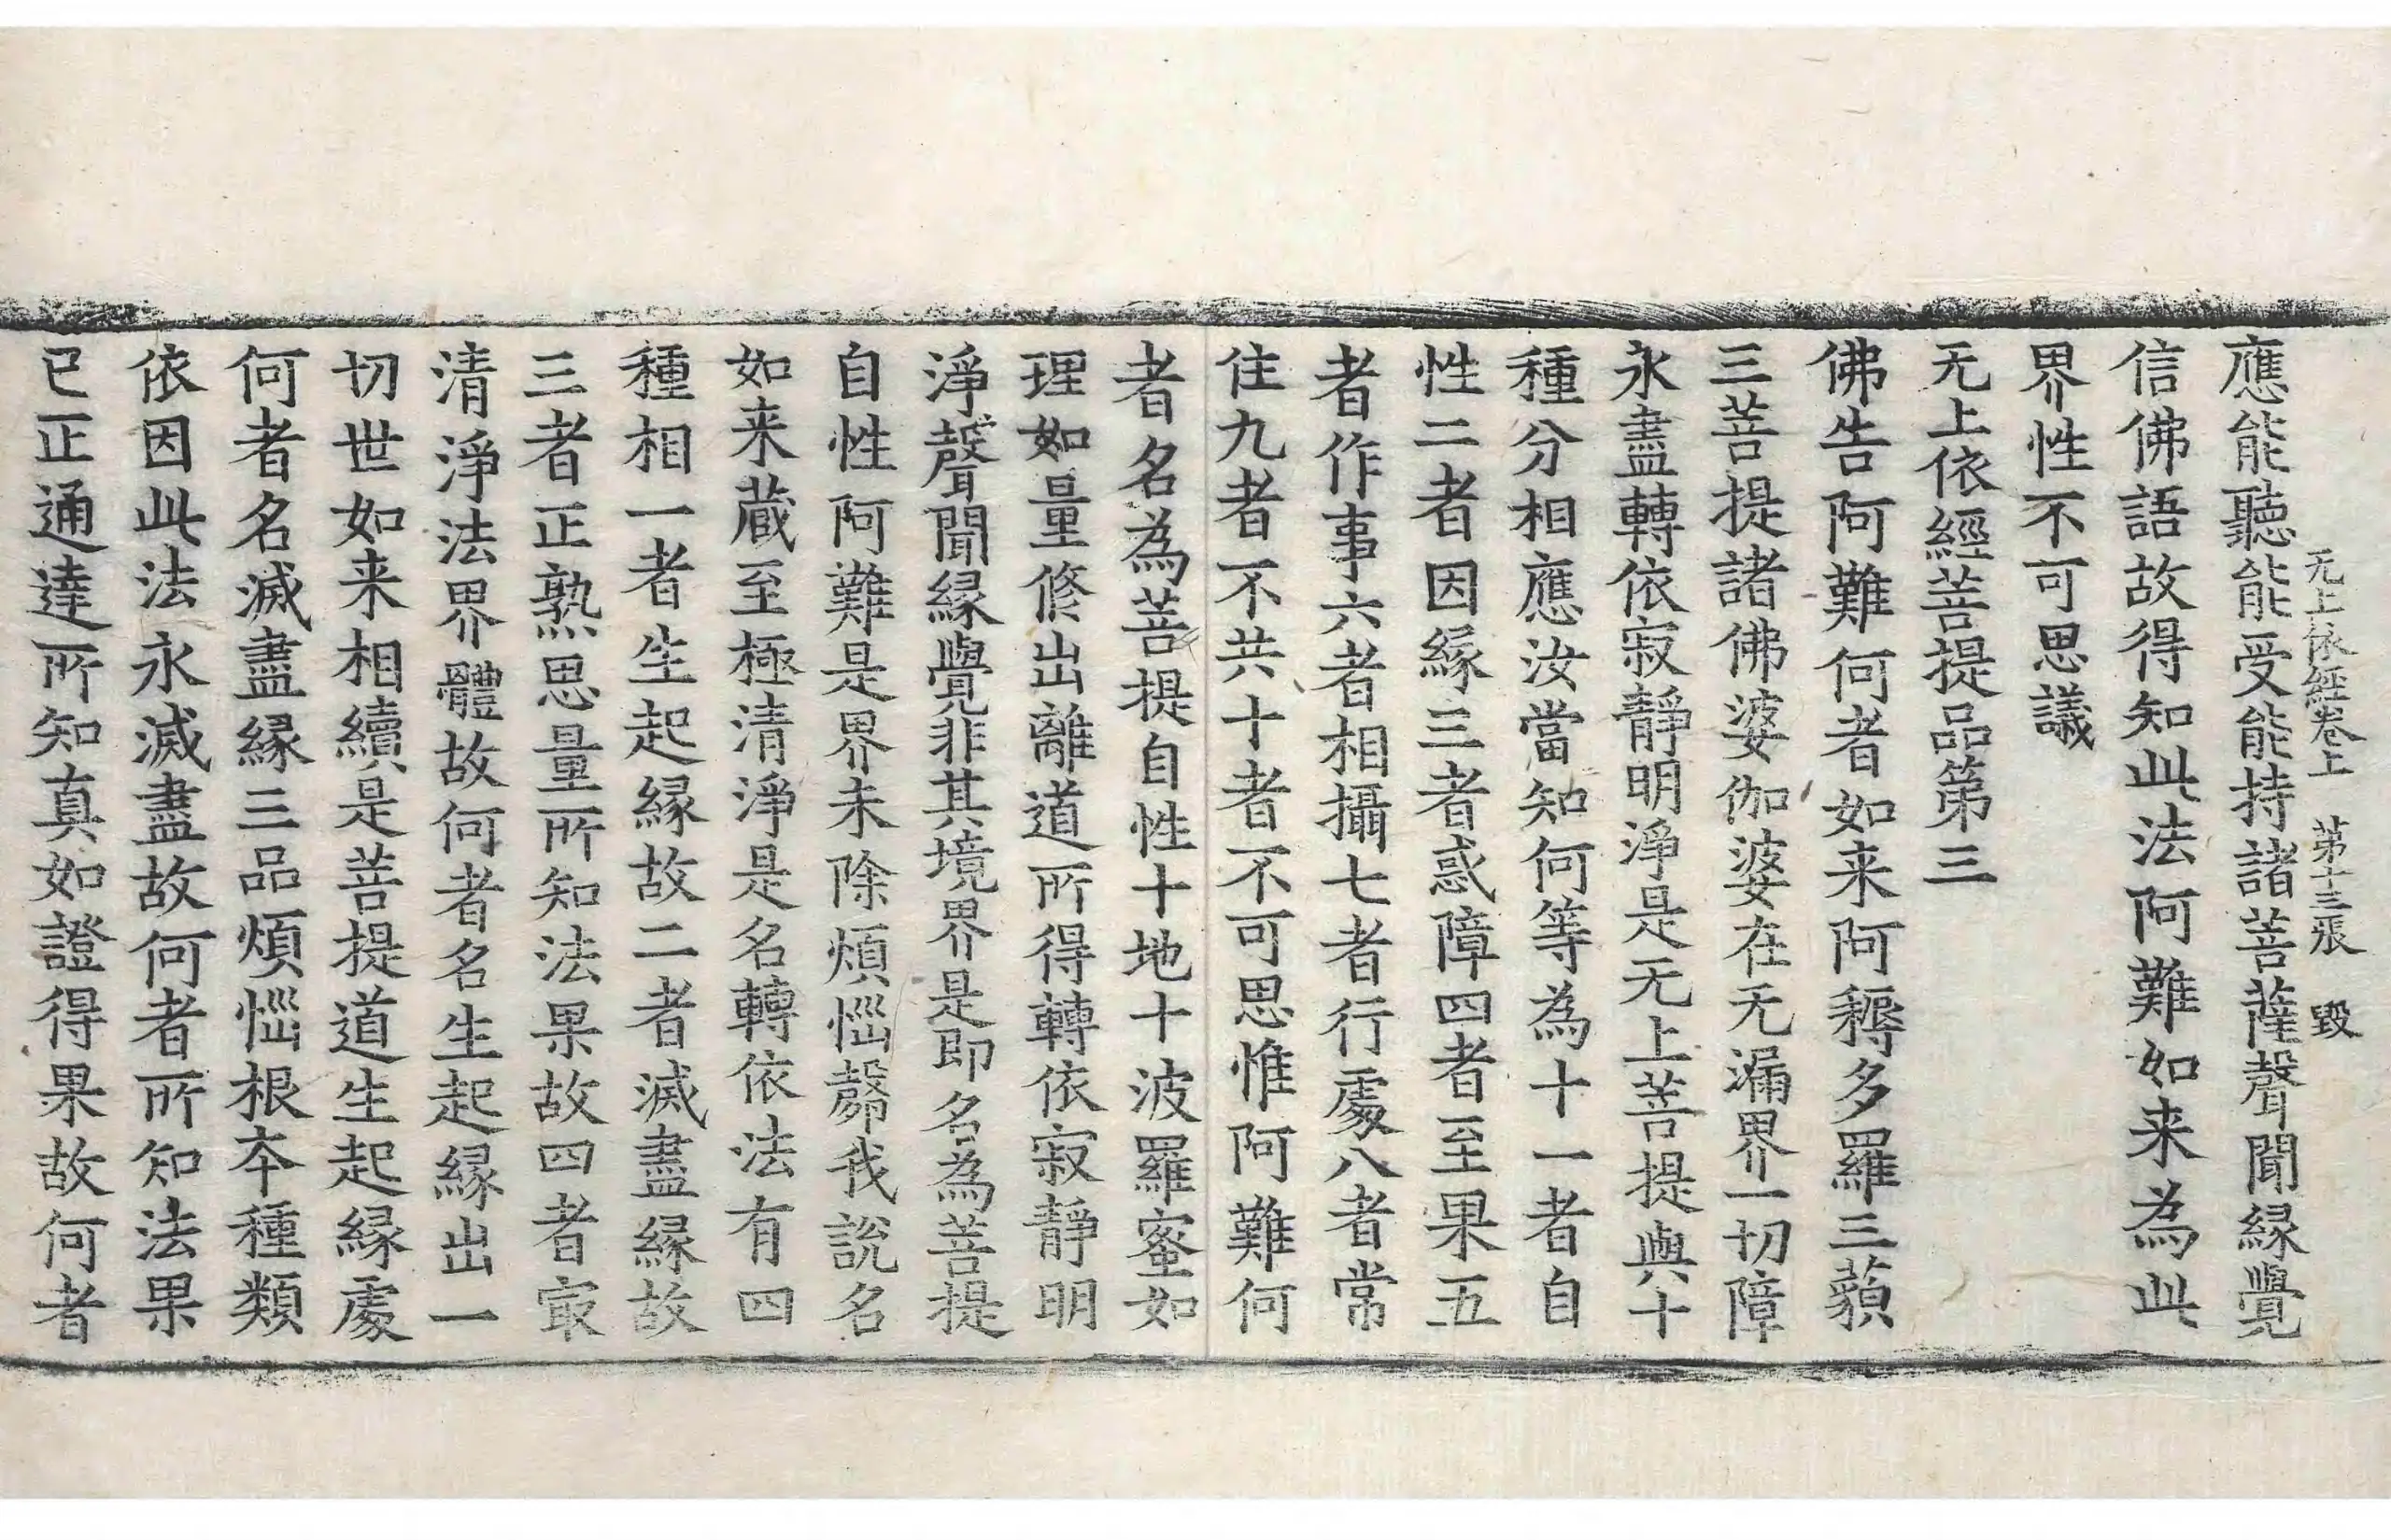 无上依經卷上 第十三張 毀
應能聽能受能持諸菩薩聲聞縁覺
信佛語故得知此法阿難如来為此
界性不可思議
无上依經菩提品第三
佛告阿難何者如来阿耨多羅三藐
三菩提諸佛婆伽婆在无漏界一切障
永盡轉依寂靜明淨是无上菩提與十
種分相應汝當知何等為十一者自
性二者因緣三者惑障四者至果五
者作事六者相攝七者行處八者常
住九者不共十者不可思惟阿難何
者名為菩提自性十地十波羅蜜如
理如量修出離道所得轉依寂靜明
淨聲聞縁覺非其境界是即名為菩提
自性阿難是界未除煩惱㲉我說名
如来蔵至極清淨是名轉依法有四
種相一者生起縁故二者滅盡縁故
三者正熟思量所知法果故四者㝡
清淨法界體故何者名生起縁出一
切世如来相續是菩提道生起縁處
何者名滅盡縁三品煩惱根本種類
依因此法永滅盡故何者所知法果
已正通達所知真如證得果故何者